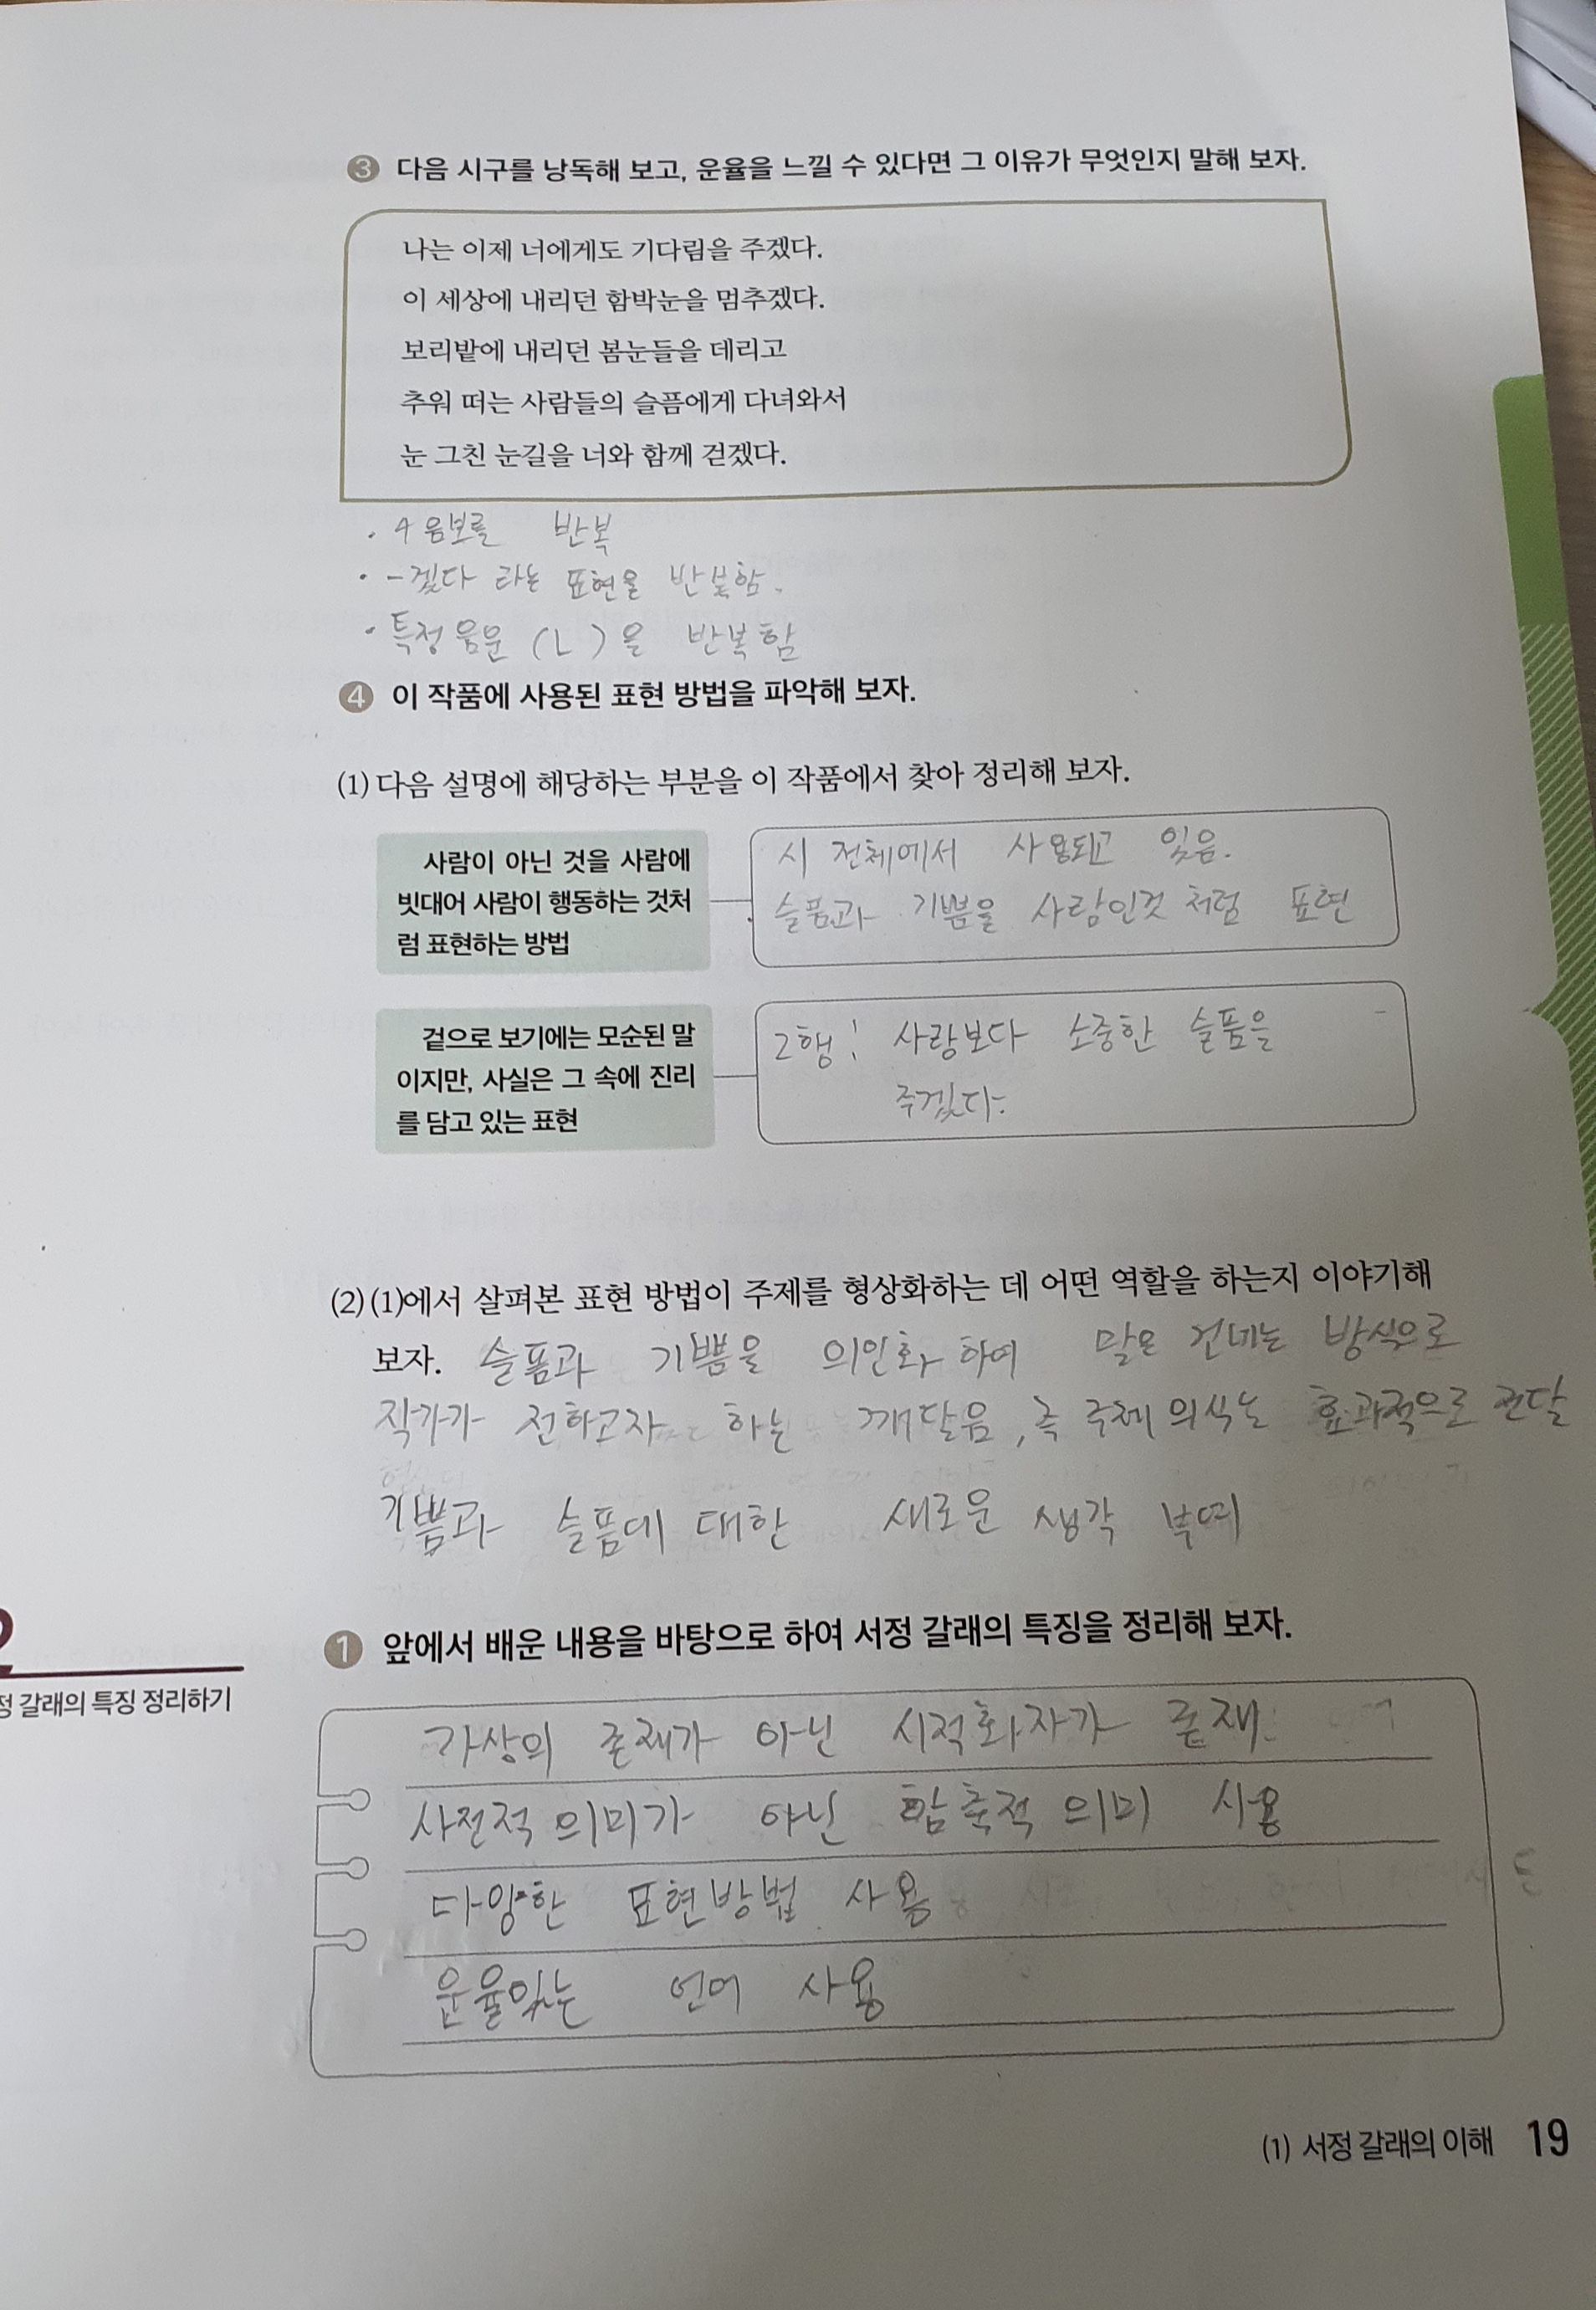 ③ 다음 시구를 낭독해 보고, 운율을 느낄 수 있다면 그 이유가 무엇인지 말해 보자.
나는 이제 너에게도 기다림을 주겠다.
이 세상에 내리던 함박눈을 멈추겠다.
보리밭에 내리던 봄눈들을 데리고
추워 떠는 사람들의 슬픔에게 다녀와서
눈 그친 눈길을 너와 함께 걷겠다.
· 4음보를 반복
· -겠다 라는 표현을 반복함.
· 특정 음운 (ㄴ)을 반복함
④ 이 작품에 사용된 표현 방법을 파악해 보자.
(1) 다음 설명에 해당하는 부분을 이 작품에서 찾아 정리해 보자.
사람이 아닌 것을 사람에
빗대어 사람이 행동하는 것처
럼 표현하는 방법
시 전체에서 사용되고 있음.
슬픔과 기쁨을 사람인것 처럼 표현
겉으로 보기에는 모순된 말
이지만, 사실은 그 속에 진리
를 담고 있는 표현
2행: 사랑보다 소중한 슬픔을
주겠다.
(2) (1)에서 살펴본 표현 방법이 주제를 형상화하는 데 어떤 역할을 하는지 이야기해
보자. 슬픔과 기쁨을 의인화 하여 말을 건네는 방식으로
작가가 전하고자 하는 깨달음, 즉 주제 의식을 효과적으로 전달
기쁨과 슬픔에 대한 새로운 생각 부여
2
정 갈래의 특징 정리하기
① 앞에서 배운 내용을 바탕으로 하여 서정 갈래의 특징을 정리해 보자.
가상의 존재가 아닌 시적화자가 존재.
사전적 의미가 아닌 함축적 의미 사용
다양한 표현방법 사용
운율있는 언어 사용
(1) 서정 갈래의 이해 19